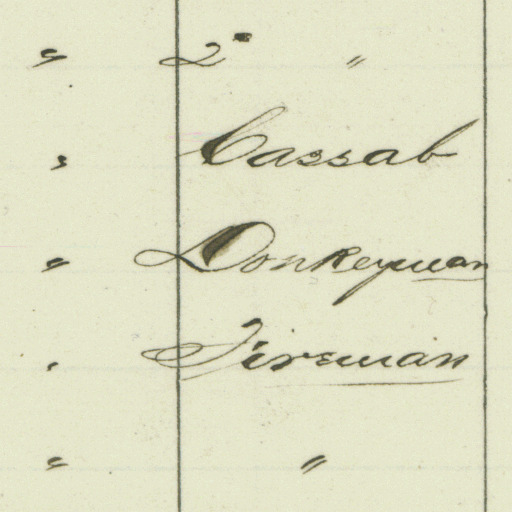 " 2" "
" Cassab
" Donkeyman
" Fireman
" "